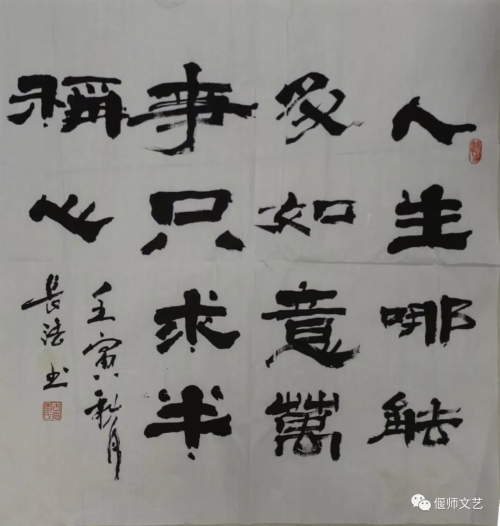 人生哪能
多如意萬
事只求半
稱心
壬寅八秋月
長法书
偃师文艺